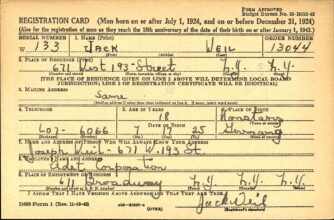 FORM APPROVED
REGISTRATION CARD (Men born on or after July 1, 1924, and on or before December 31, 1924)
(Also for the registration of men as they reach the 18th anniversary of the date of their birth on or after January 1, 1943.)
SERIAL NUMBER 1. NAME (Print) ORDER NUMBER
W 133 Jack Weil 13044
2. PLACE OF RESIDENCE (Print)
671 West 193 Street N.Y. N.Y.
[THE PLACE OF RESIDENCE GIVEN ON LINE 2 ABOVE WILL DETERMINE LOCAL BOARD
JURISDICTION; LINE 2 OF REGISTRATION CERTIFICATE WILL BE IDENTICAL]
3. MAILING ADDRESS
Same
4. TELEPHONE 5. AGE IN YEARS 6. PLACE OF BIRTH
18
6066 7 25 Germany
7. NAME AND ADDRESS OF PERSON WHO WILL ALWAYS KNOW YOUR ADDRESS
Joseph Weil - 671 W. 193 St.
8. EMPLOYER'S NAME AND ADDRESS
Corporation
Broadway N.Y. N.Y.
I AFFIRM THAT I HAVE VERIFIED ABOVE ANSWERS AND THAT THEY ARE TRUE.
DSS Form 1 Jack Weil